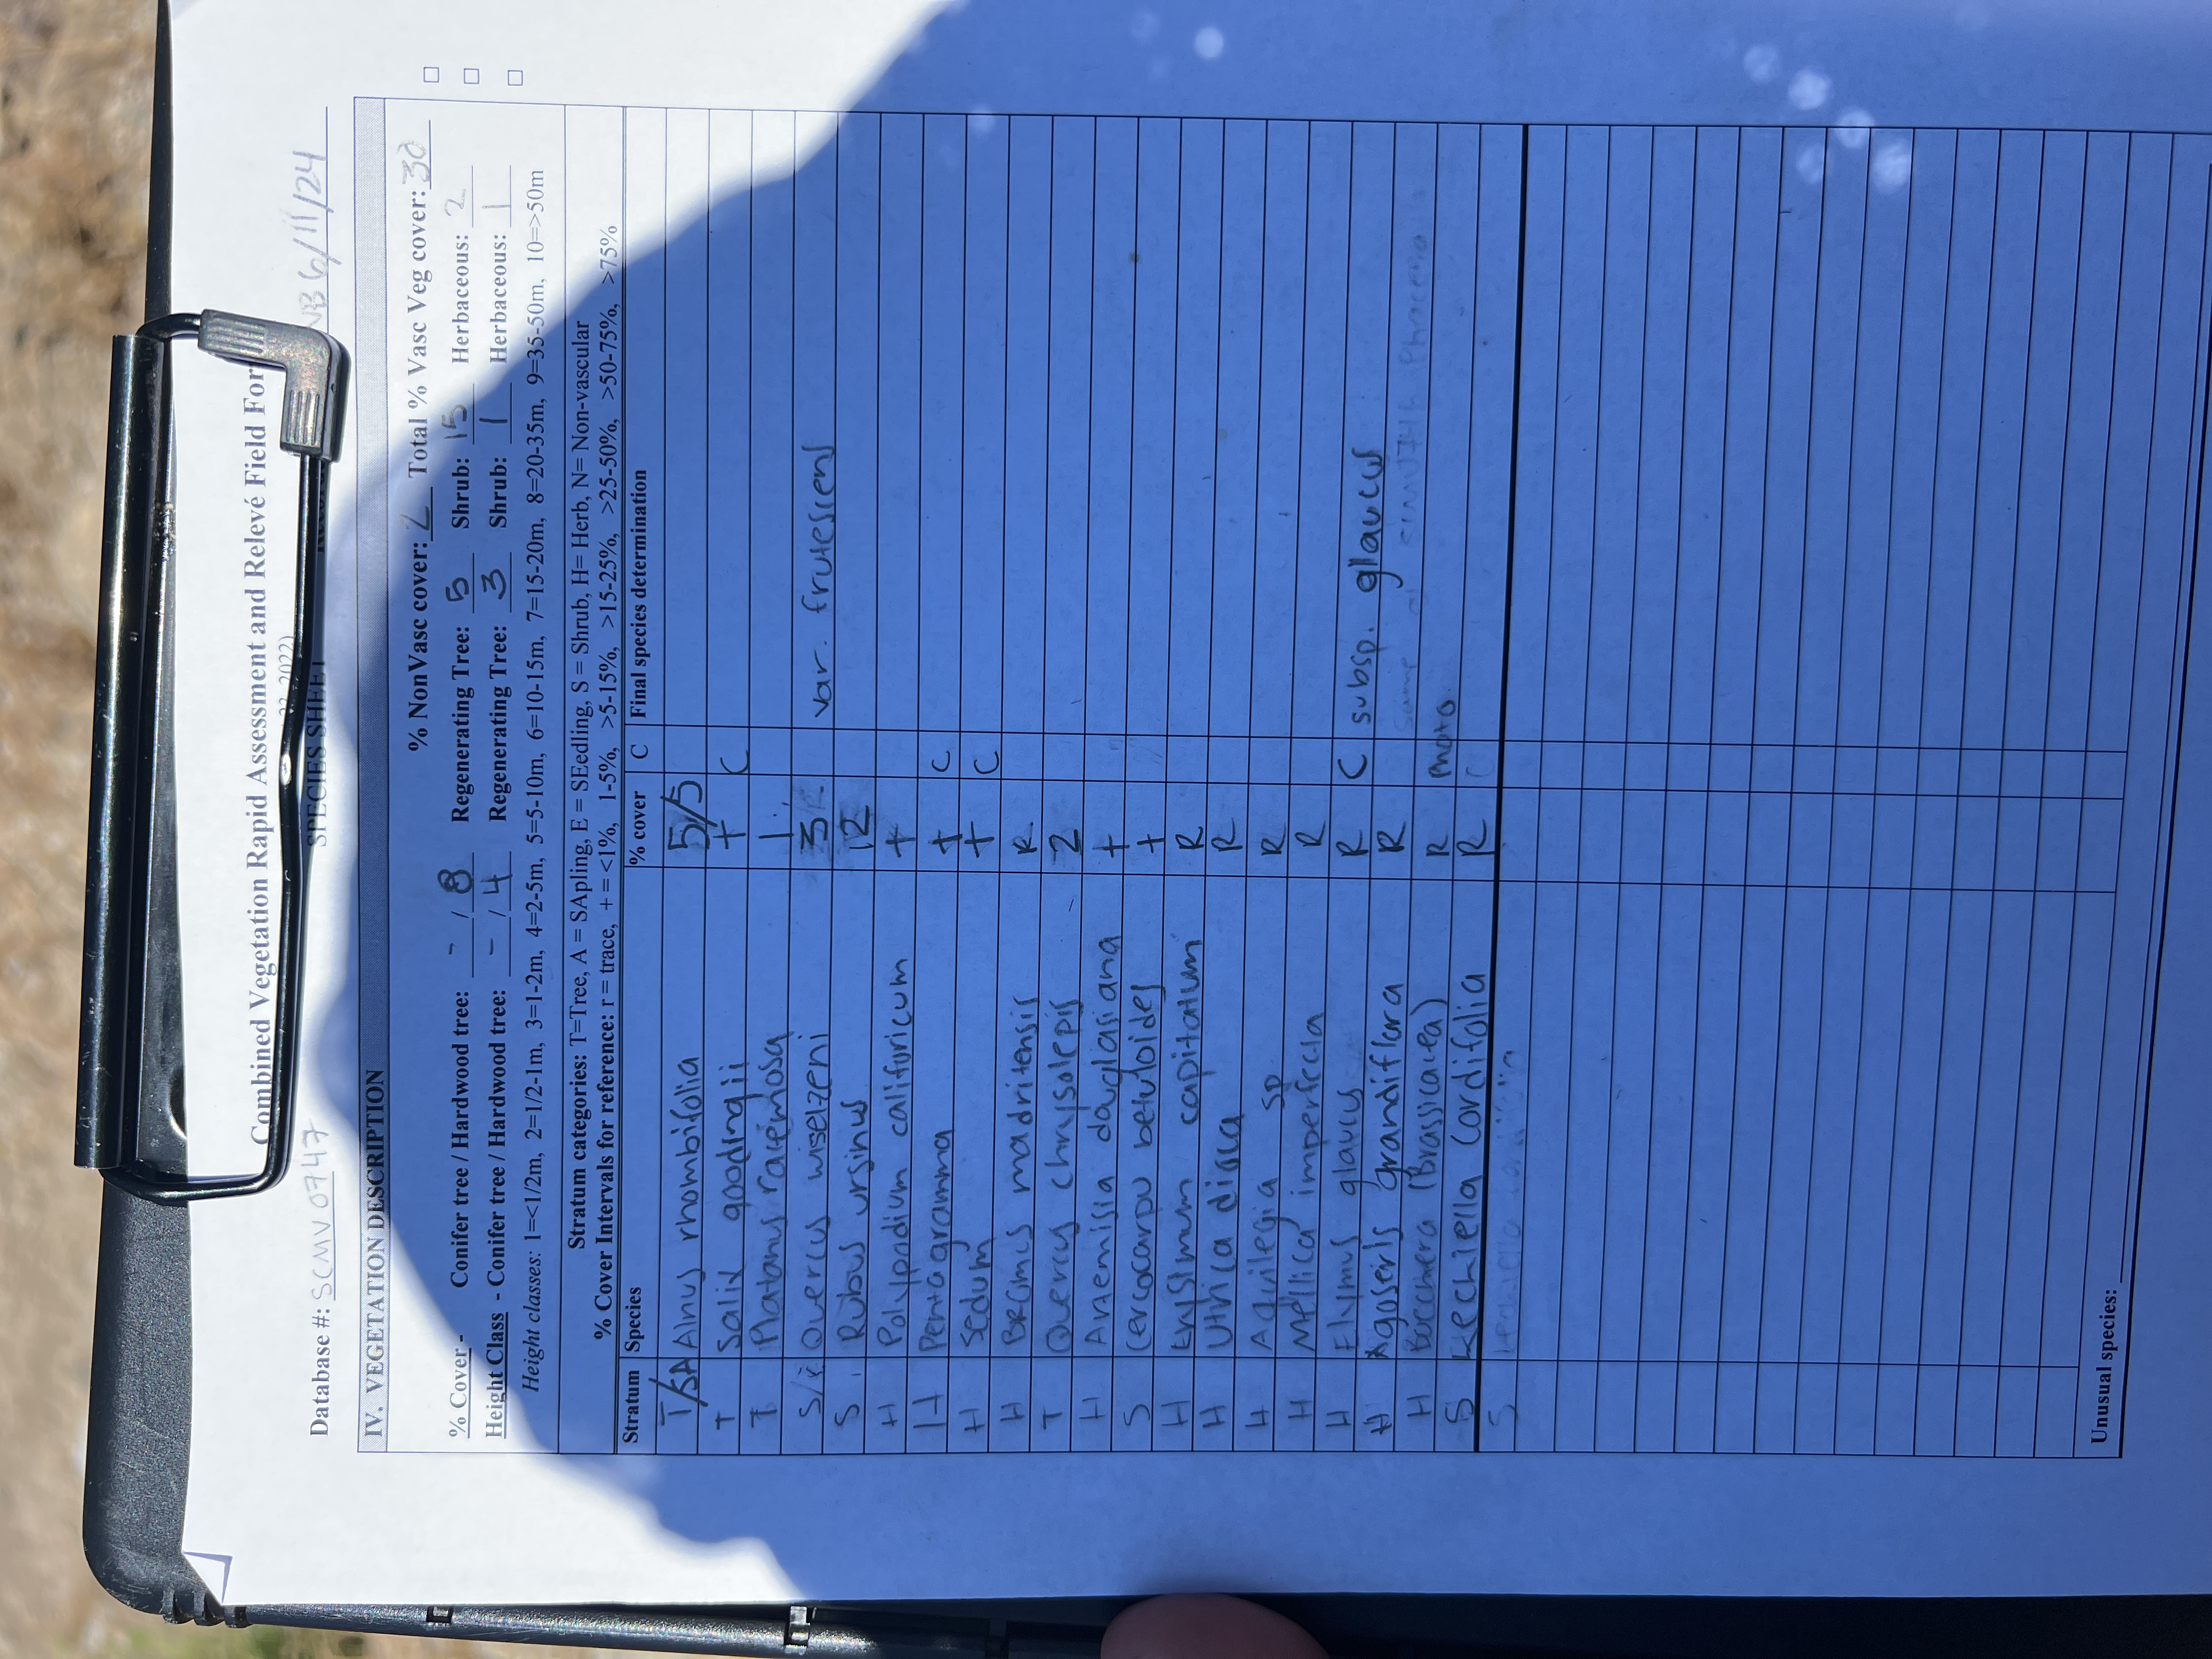 Combined Vegetation Rapid Assessment and Relevé Field For
22, 2022)
Database #: SCMV0747 SPECIES SHEET NB 6/11/24
IV. VEGETATION DESCRIPTION
% NonVasc cover: 2 Total % Vasc Veg cover: 30
% Cover - Conifer tree / Hardwood tree: - / 8 Regenerating Tree: 5 Shrub: 15 Herbaceous: 2
Height Class - Conifer tree / Hardwood tree: - / 4 Regenerating Tree: 3 Shrub: 1 Herbaceous: 1
Height classes: 1=<1/2m, 2=1/2-1m, 3=1-2m, 4=2-5m, 5=5-10m, 6=10-15m, 7=15-20m, 8=20-35m, 9=35-50m, 10=>50m
Stratum categories: T=Tree, A = SApling, E = SEedling, S = Shrub, H= Herb, N= Non-vascular
% Cover Intervals for reference: r = trace, + = <1%, 1-5%, >5-15%, >15-25%, >25-50%, >50-75%, >75%
Stratum Species % cover C Final species determination
T/SA Alnus rhombifolia 5/5
T Salix gooddingii + C
T Platanus racemosa 1
S Quercus wislzeni 3 var. frutescens
S Rubus ursinus 12
H Polypodium californicum +
H Pentagramma + C
H Sedum + C
H Bromus madritensis R
T Quercus chrysolepis 2
H Artemisia douglasiana +
S Cercocarpu betuloides +
H Erysimum capitatum R
H Urtica dioica R
H Aquilegia sp R
H Mellica imperfecta R
H Elymus glaucus R C subsp. glaucus
H Agoseris grandiflora R
H Boechera (Brassicacea) R photo
S Keckiella cordifolia R
S
Unusual species: